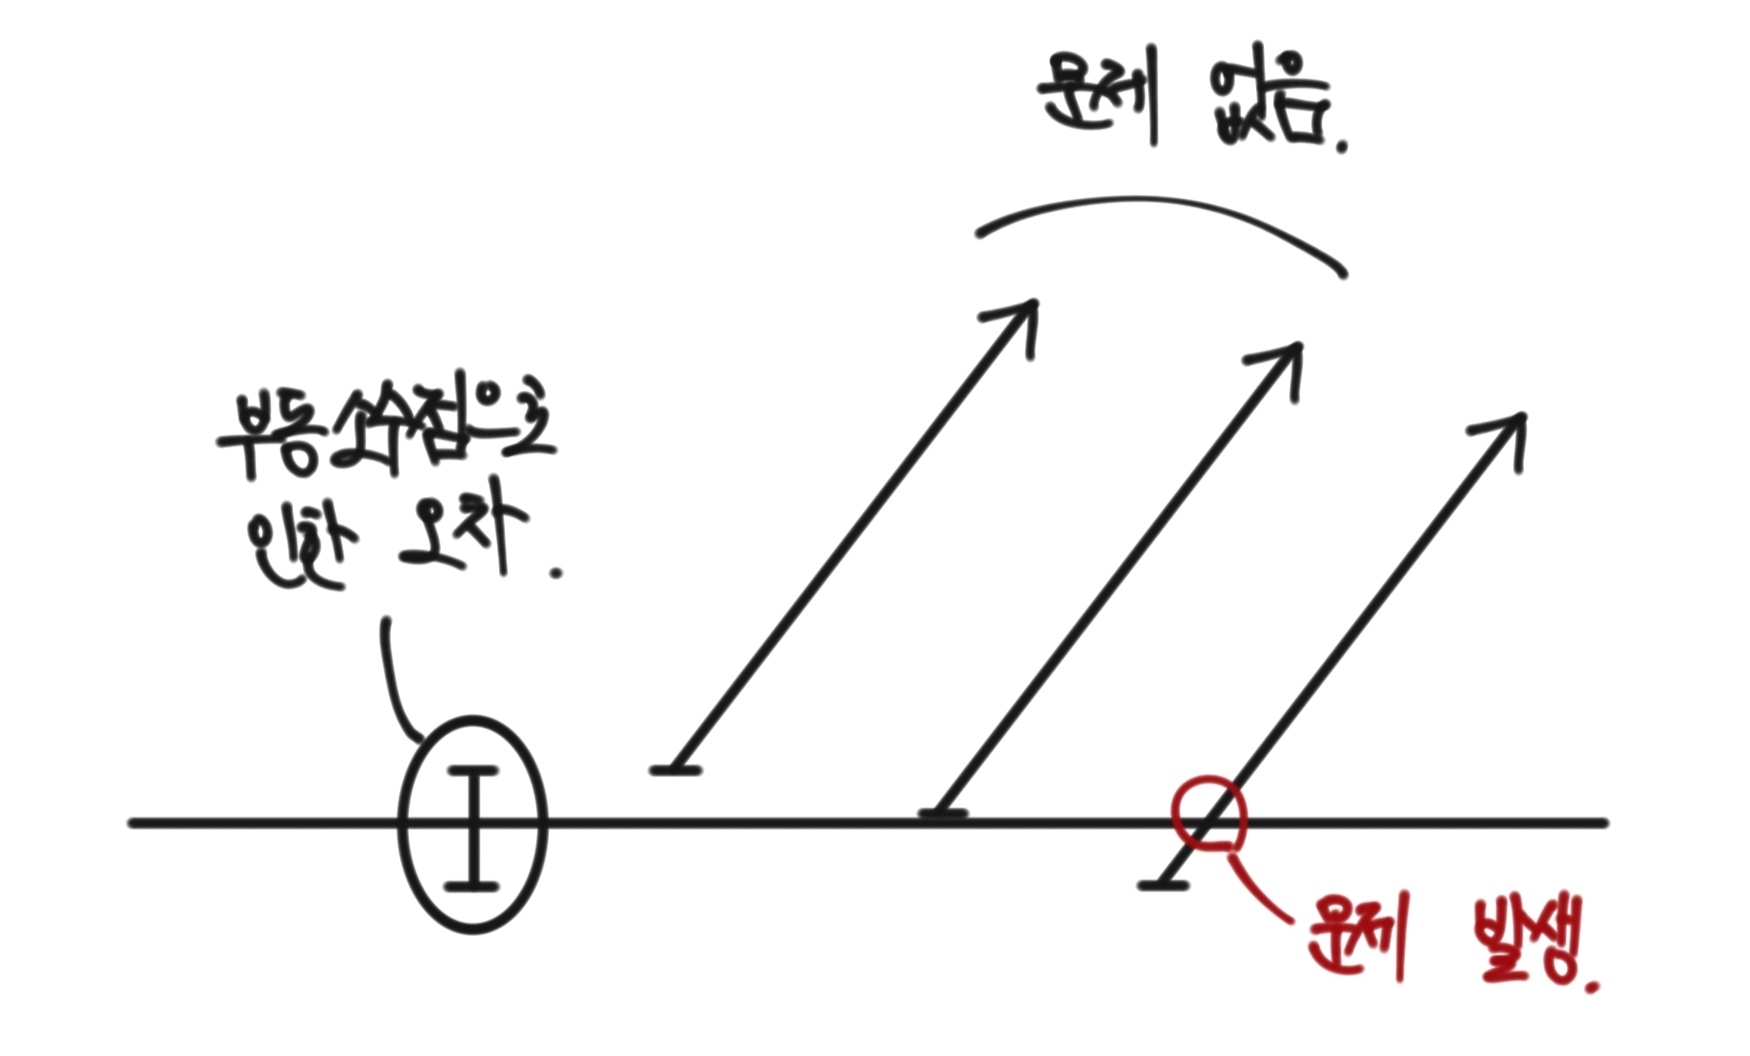 문제 없음.
부동소수점으로
인한 오차.
문제 발생.